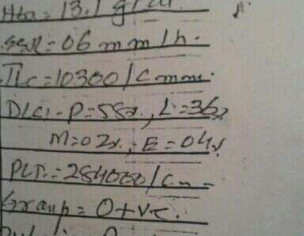 Hba = 13.1 g/dl
ESR = 06 mm/h.
TLC = 10300/cmm.
DLC:- P=55%, L=36%
M=02%, E=04%
PLT:= 284000/Cm
Group = O+ve.